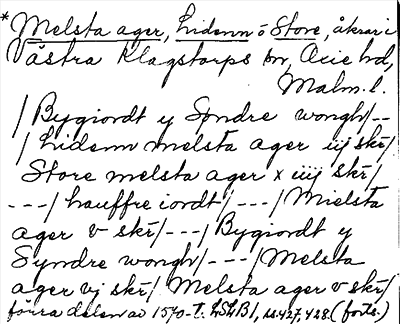 * Melsta ager, Lidenn ō Store, åkrar i
Västra Klagstorps sn, Oxie hd,
Malm. l.
/ Bygiordt y Syndre wongh/--
/ Lidenn melsta ager iiij skr̃/
Store melsta ager x iiij skr̃/
---/ hauffre iordt/---/ Mielsta
ager v skr̃/---/ Bygiordt y
Syndre wongh/---/ Melsta
ager vj skr̃/ Melsta ager v skr̃/
förra delen av 1570-t. LSLB1, ss. 427, 428. (forts.)